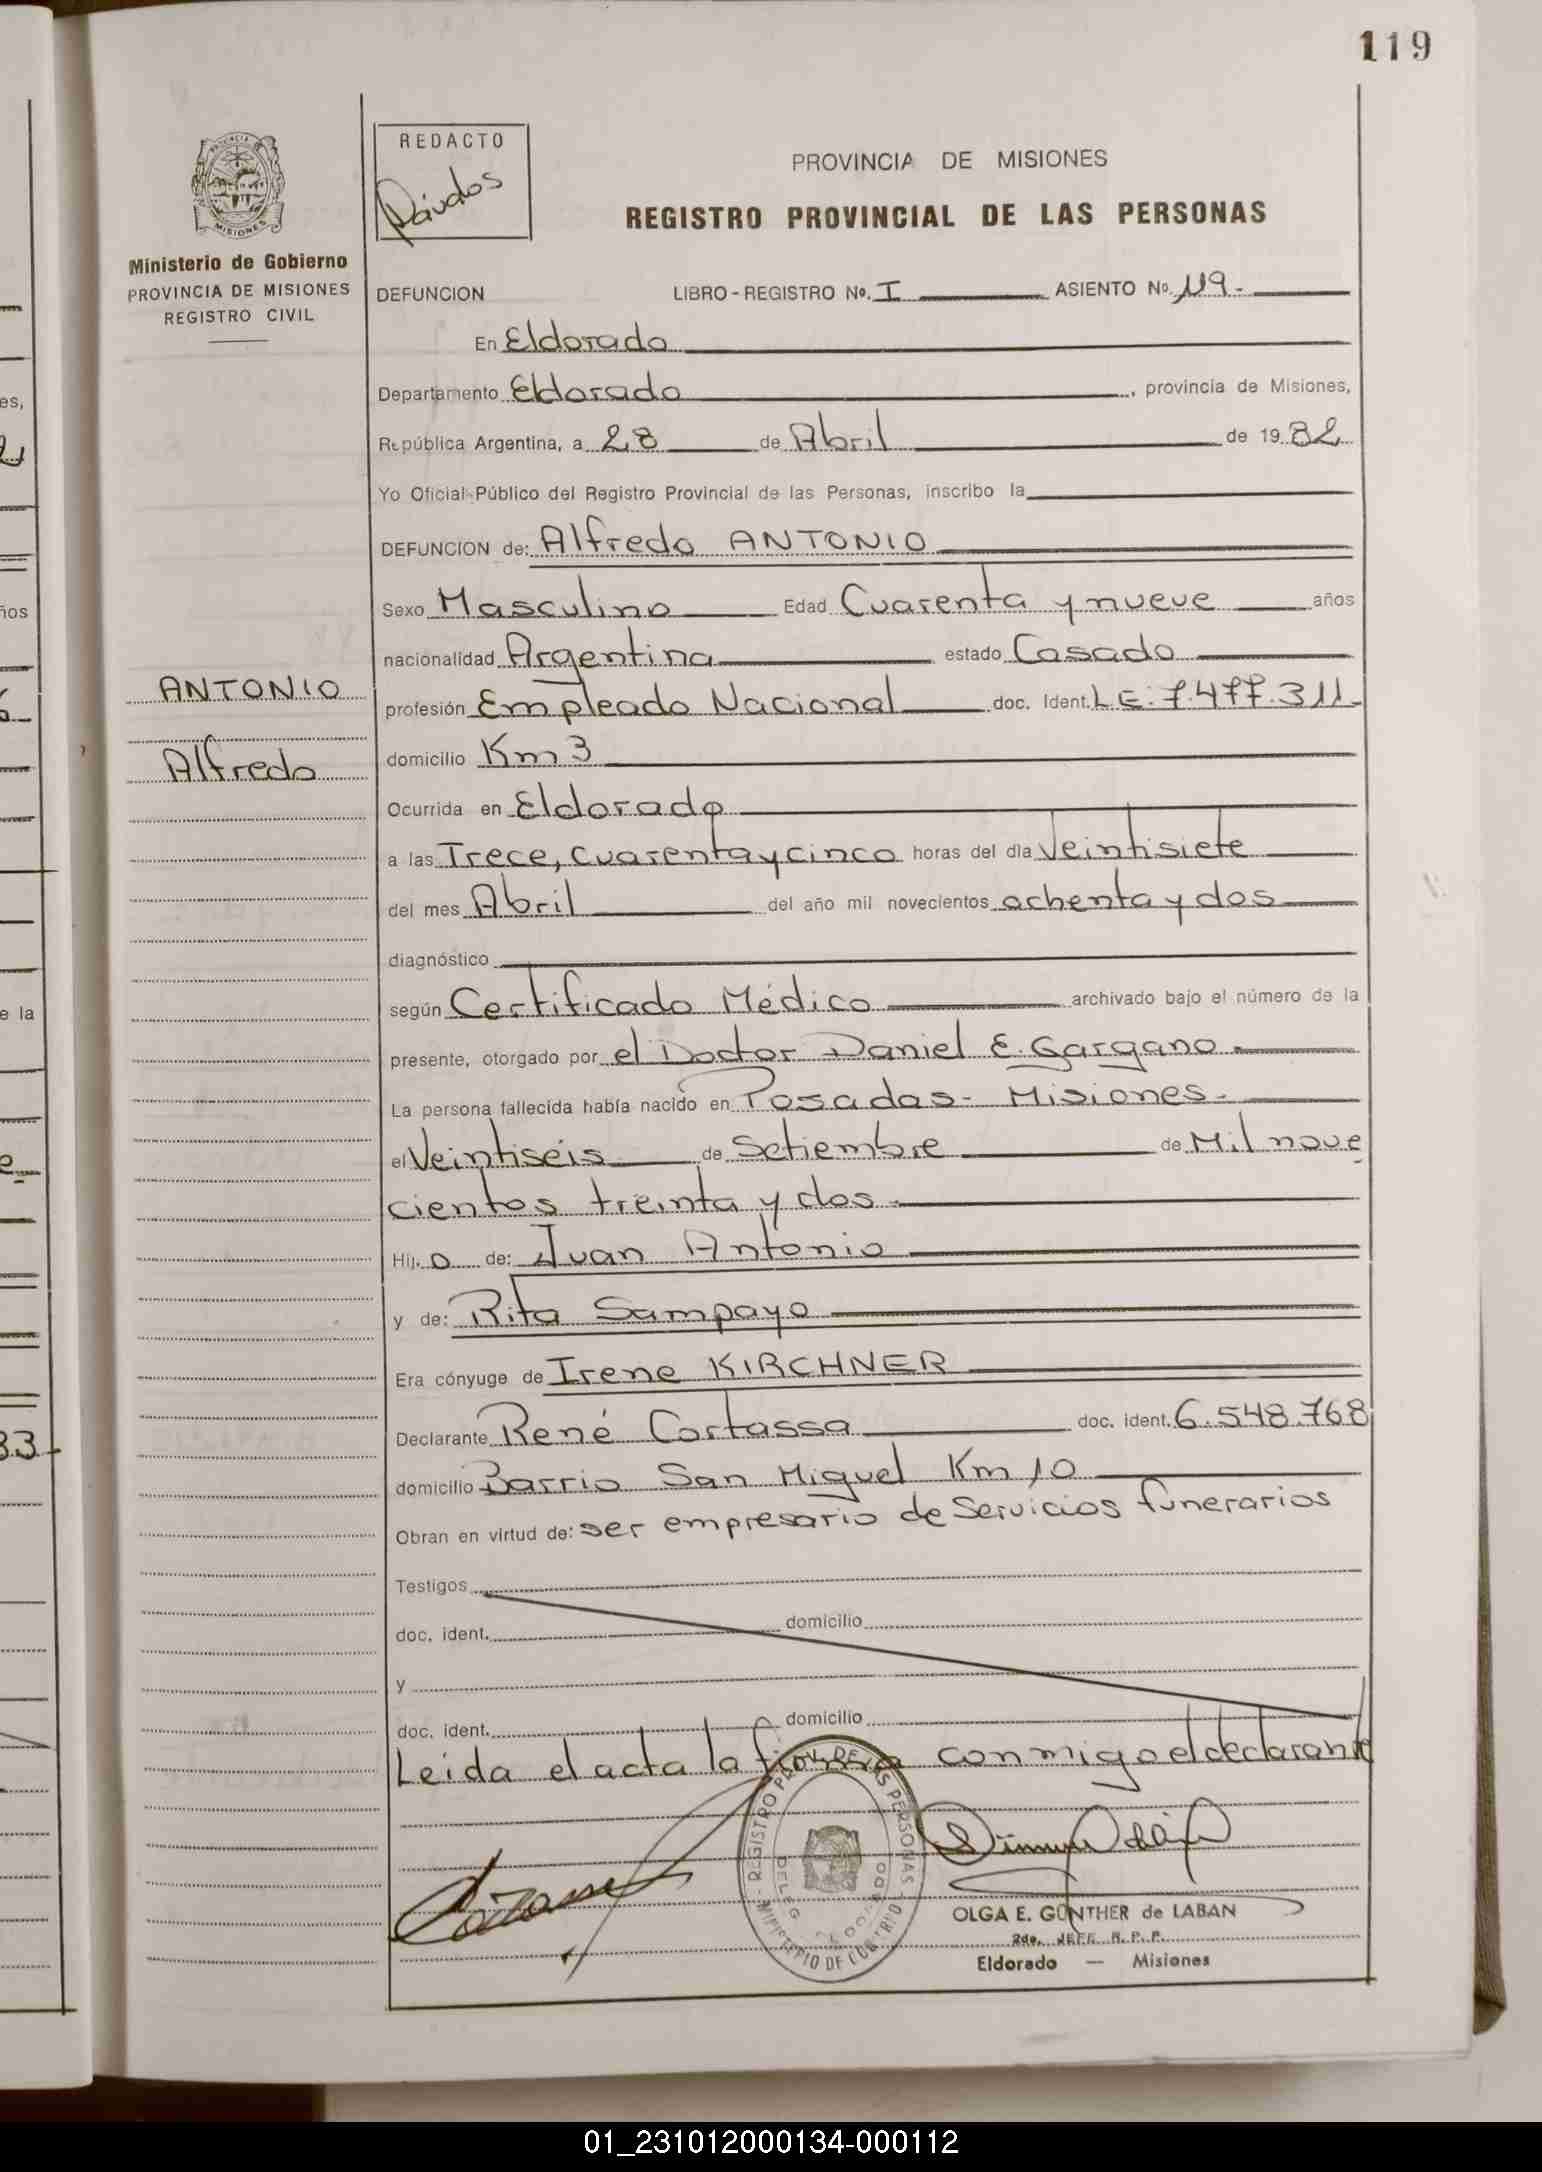 119
REDACTO
PROVINCIA DE MISIONES
REGISTRO PROVINCIAL DE LAS PERSONAS
MISIONES
Ministerio de Gobierno
PROVINCIA DE MISIONES
REGISTRO CIVIL
DEFUNCION LIBRO - REGISTRO Nº. I ASIENTO Nº. 119.-
En Eldorado
Departamento Eldorado, provincia de Misiones,
República Argentina, a 28 de Abril de 1982
Yo Oficial Público del Registro Provincial de las Personas, inscribo la
DEFUNCION de: Alfredo ANTONIO
Sexo Masculino Edad Cuarenta y nueve años
nacionalidad Argentina estado Casado
ANTONIO
profesión Empleado Nacional doc. Ident. L.E. 7.477.311-
Alfredo
domicilio Km 3
Ocurrida en Eldorado
a las Trece, cuarenta y cinco horas del día Veintisiete
del mes Abril del año mil novecientos ochenta y dos
diagnóstico
según Certificado Médico archivado bajo el número de la
presente, otorgado por el Doctor Daniel E. Gargano.
La persona fallecida había nacido en Posadas- Misiones-
el Veintiséis de Setiembre de Mil nove
cientos treinta y dos-
Hij. o de: Juan Antonio
y de: Rita Sampayo
Era cónyuge de Irene KIRCHNER
Declarante René Cortassa doc. ident. 6.548.768
domicilio Barrio San Miguel Km 10
Obran en virtud de: ser empresario de Servicios funerarios
Testigos
doc. ident. domicilio
y
doc. ident. domicilio
Leída el acta la firma conmigo el declarante
REGISTRO PROV. DE LAS PERSONAS
OLGA E. GÜNTHER de LABAN
2do. JEFE R. P. P.
Eldorado — Misiones
01_231012000134-000112